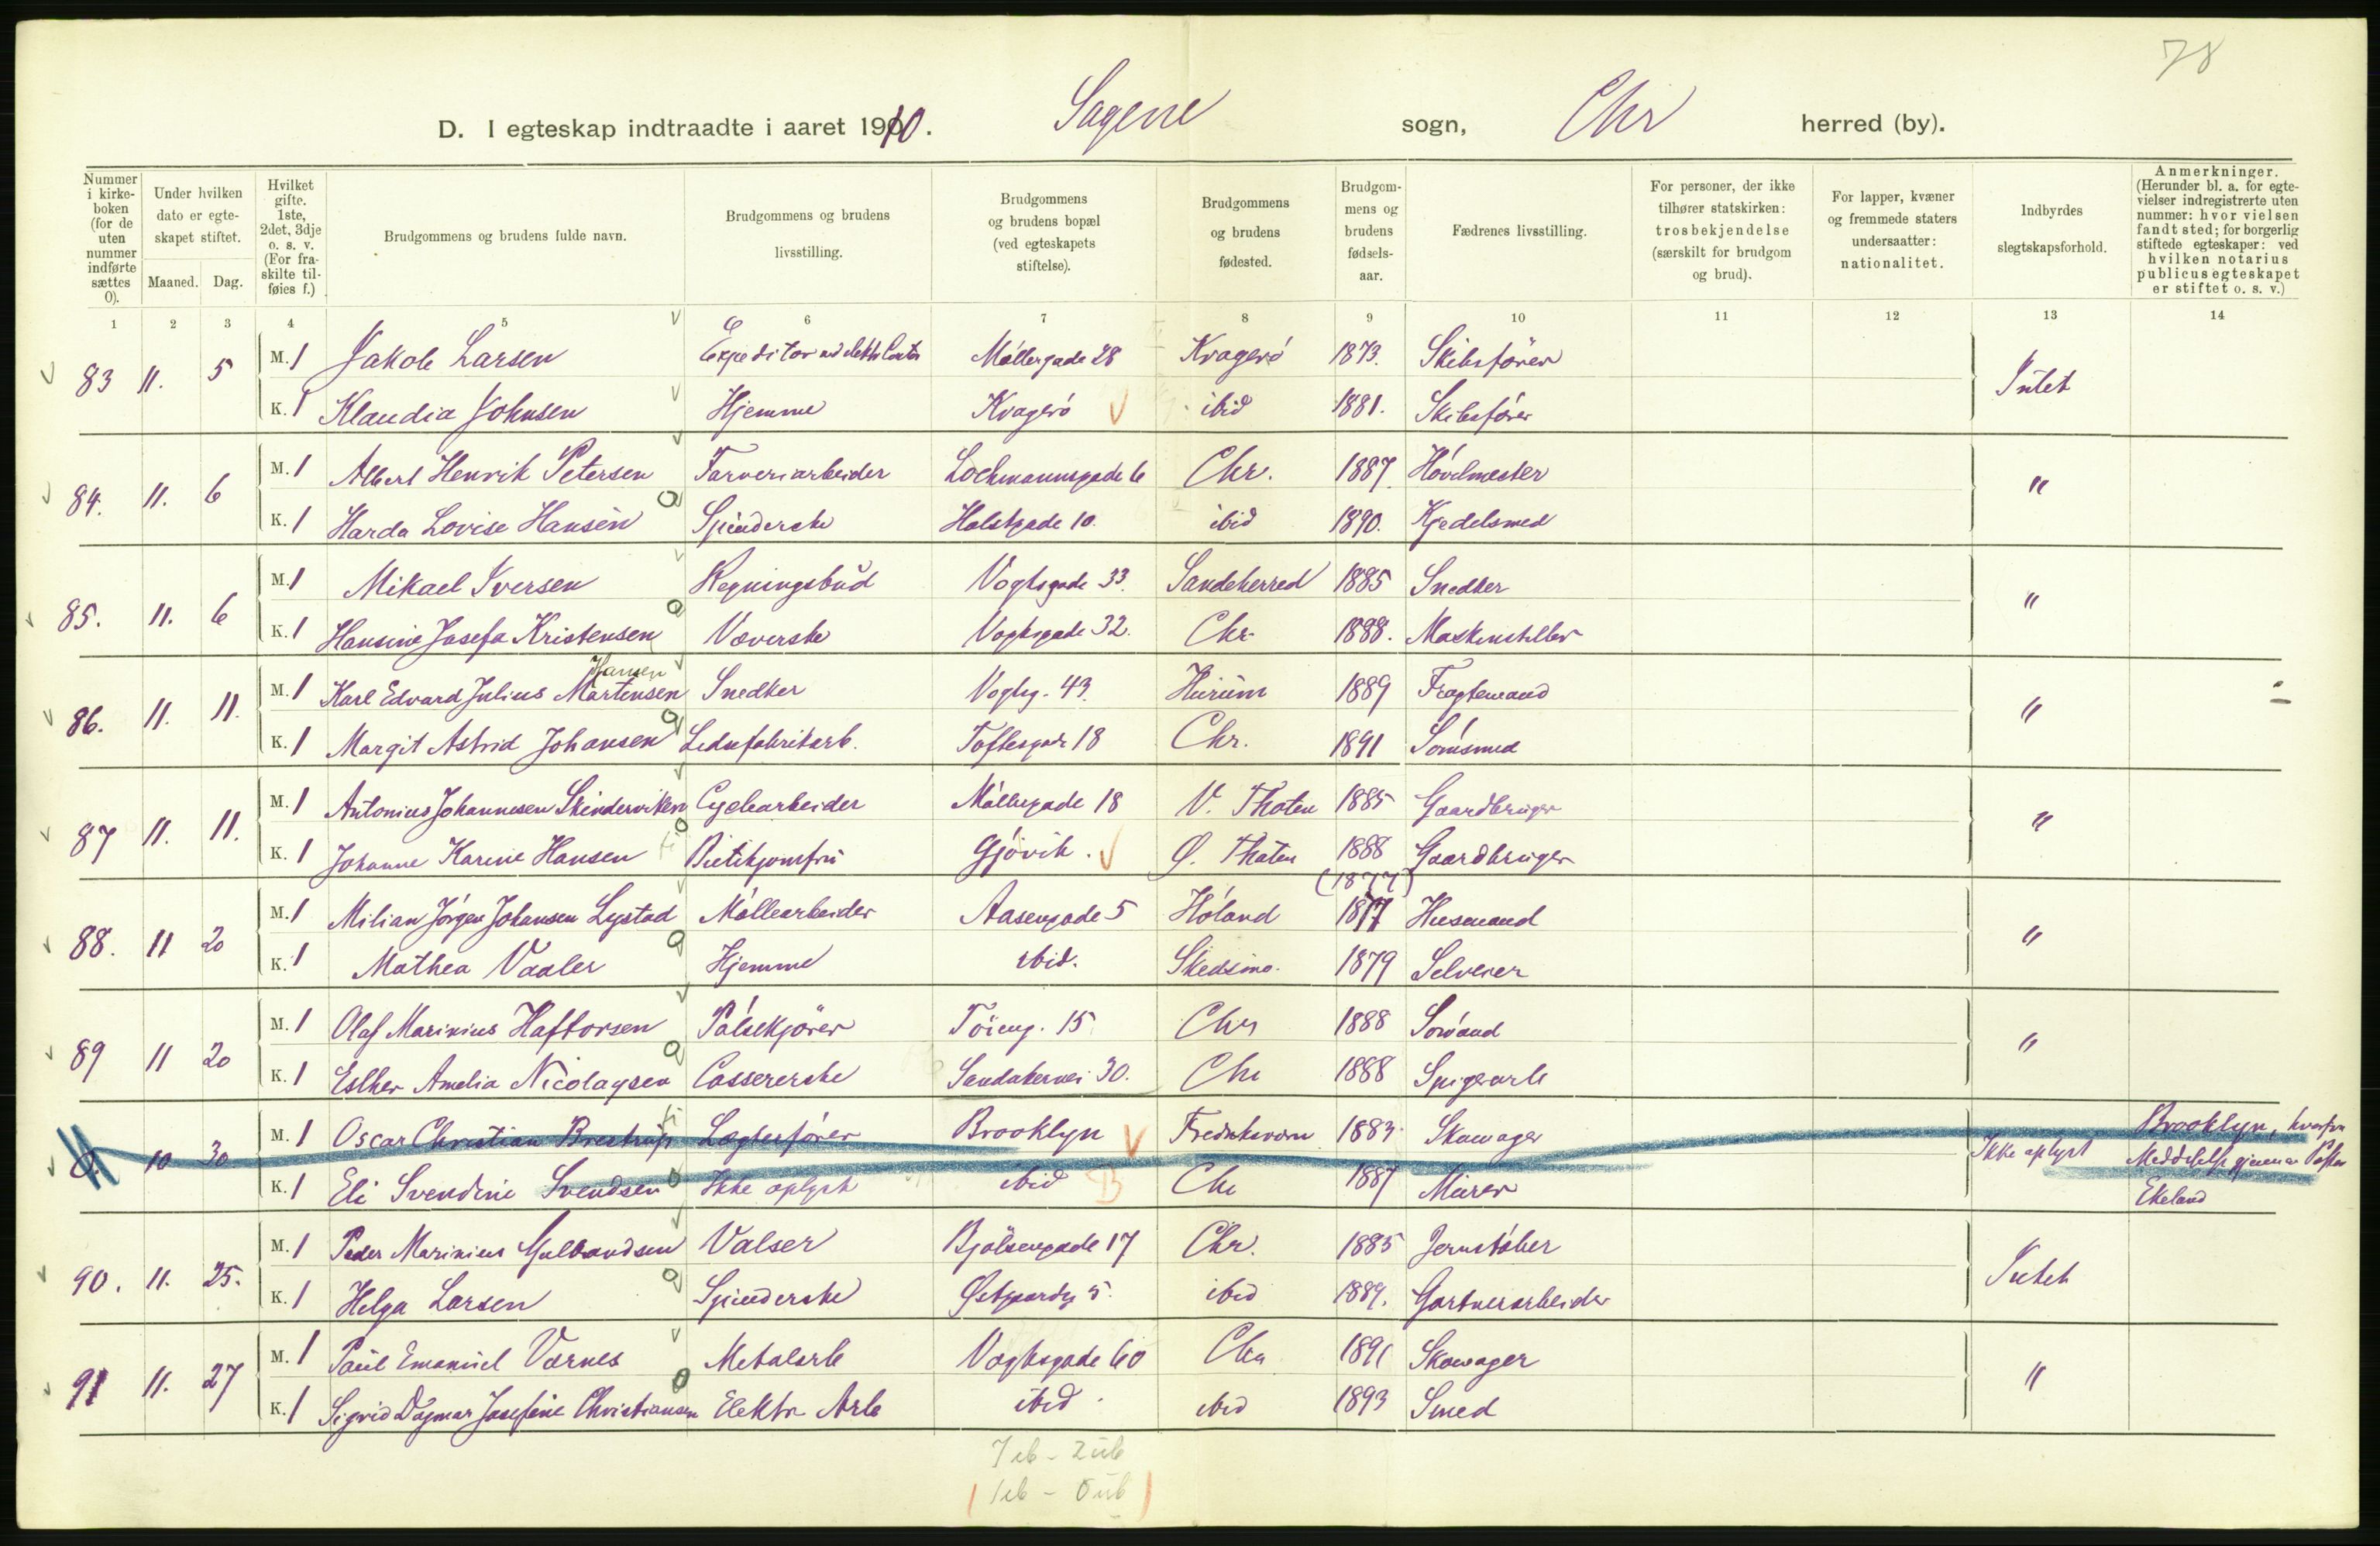 78
D. I egteskap indtraadte i aaret 1910. Sagene sogn, Chr herred (by).
Nummer i kirke-boken (for de uten nummer indførte sættes 0).
Under hvilken dato er egte-skapet stiftet.
Maaned. Dag.
Hvilket gifte. 1ste, 2det, 3dje o. s. v. (For fra-skilte til-føies f.)
Brudgommens og brudens fulde navn.
Brudgommens og brudens livsstilling.
Brudgommens og brudens bopæl (ved egteskapets stiftelse).
Brudgommens og brudens fødested.
Brudgom-mens og brudens fødsels-aar.
Fædrenes livsstilling.
For personer, der ikke tilhører statskirken: trosbekjendelse (særskilt for brudgom og brud).
For lapper, kvæner og fremmede staters undersaatter: nationalitet.
Indbyrdes slegtskapsforhold.
Anmerkninger. (Herunder bl. a. for egte-vielser indregistrerte uten nummer: hvor vielsen fandt sted; for borgerlig stiftede egteskaper: ved hvilken notarius publicus egteskapet er stiftet o. s. v.)
1 2 3 4 5 6 7 8 9 10 11 12 13 14
83 11. 5 M. 1 Jakob Larsen Expeditor Møllergade 28 Kragerø 1873. Skibsfører Intet
K. 1 Klaudia Johnsen Hjemme Kragerø ibid 1881. Skibsfører
84. 11. 6 M. 1 Albert Henrik Petersen Farveriarbeider Lochmannsgade 6 Chr. 1887 Høvlmester "
K. 1 Harda Lovise Hansen Spinderske Holstgade 10. ibid 1890. Kjedelsmed
85. 11. 6 M. 1 Mikael Iversen Regningsbud Vogtsgade 33. Sandeherred 1885 Snedker "
K. 1 Hansine Josefa Kristensen Væverske Vogtsgade 32. Chr. 1888. Maskinstiller
Hansen
86. 11. 11. M. 1 Karl Edvard Julius Martensen Snedker Vogtsg. 43. Hurum 1889 Fragtemand "
K. 1 Margit Astrid Johansen Toftesgade 18 Chr. 1891 Sømsmed
87 11. 11. M. 1 Antonius Johannesen Skinderviken Cyclearbeider Møllergade 18 V. Thoten 1885 Gaardbruger "
K. 1 Johanne Karine Hansen Butikjomfru Gjøvik. Ø. Thoten 1888 Gaardbruger
(1877)
88. 11 20 M. 1 Milian Jørgen Johansen Lystad Møllearbeider Aasengade 5 Høland 1877 Husmand "
K. 1 Mathea Vaaler Hjemme ibid. Skedsmo. 1879 Selveier
89 11 20 M. 1 Olaf Marinius Haftorsen Pølsekjører Tøieng. 15 Chr 1888 Sømand "
K. 1 Esther Amelia Nicolaysen Cassererske Sandakervei 30. Chr 1888 Spigerarb
0. 10 30 M. 1 Oscar Christian Brestrup Lægterfører Brooklyn Fredriksværn 1883 Skomager Ikke oplyst Brooklyn, hvorfra
K. 1 Eli Svendine Svendsen Ikke oplyst ibid B Chr 1887 Murer Meddelelse gjennem Pastor
Ekeland
90. 11. 25. M. 1 Peder Marinius Gulbrandsen Valser Bjølsengade 17 Chr. 1885 Jernstøber Intet
K. 1 Helga Larsen Spinderske Østgaardsg 5. ibid 1889. Gartnerarbeider
91 11. 27 M. 1 Paul Emanuel Varnes Metalarb Vogtsgade 60 Chr 1891 Skomager "
K. 1 Sigrid Dagmar Josefine Christiansen Elektr Arb ibid. ibid 1893 Smed
7 ib - 2 ub
1 ib - 0 ub